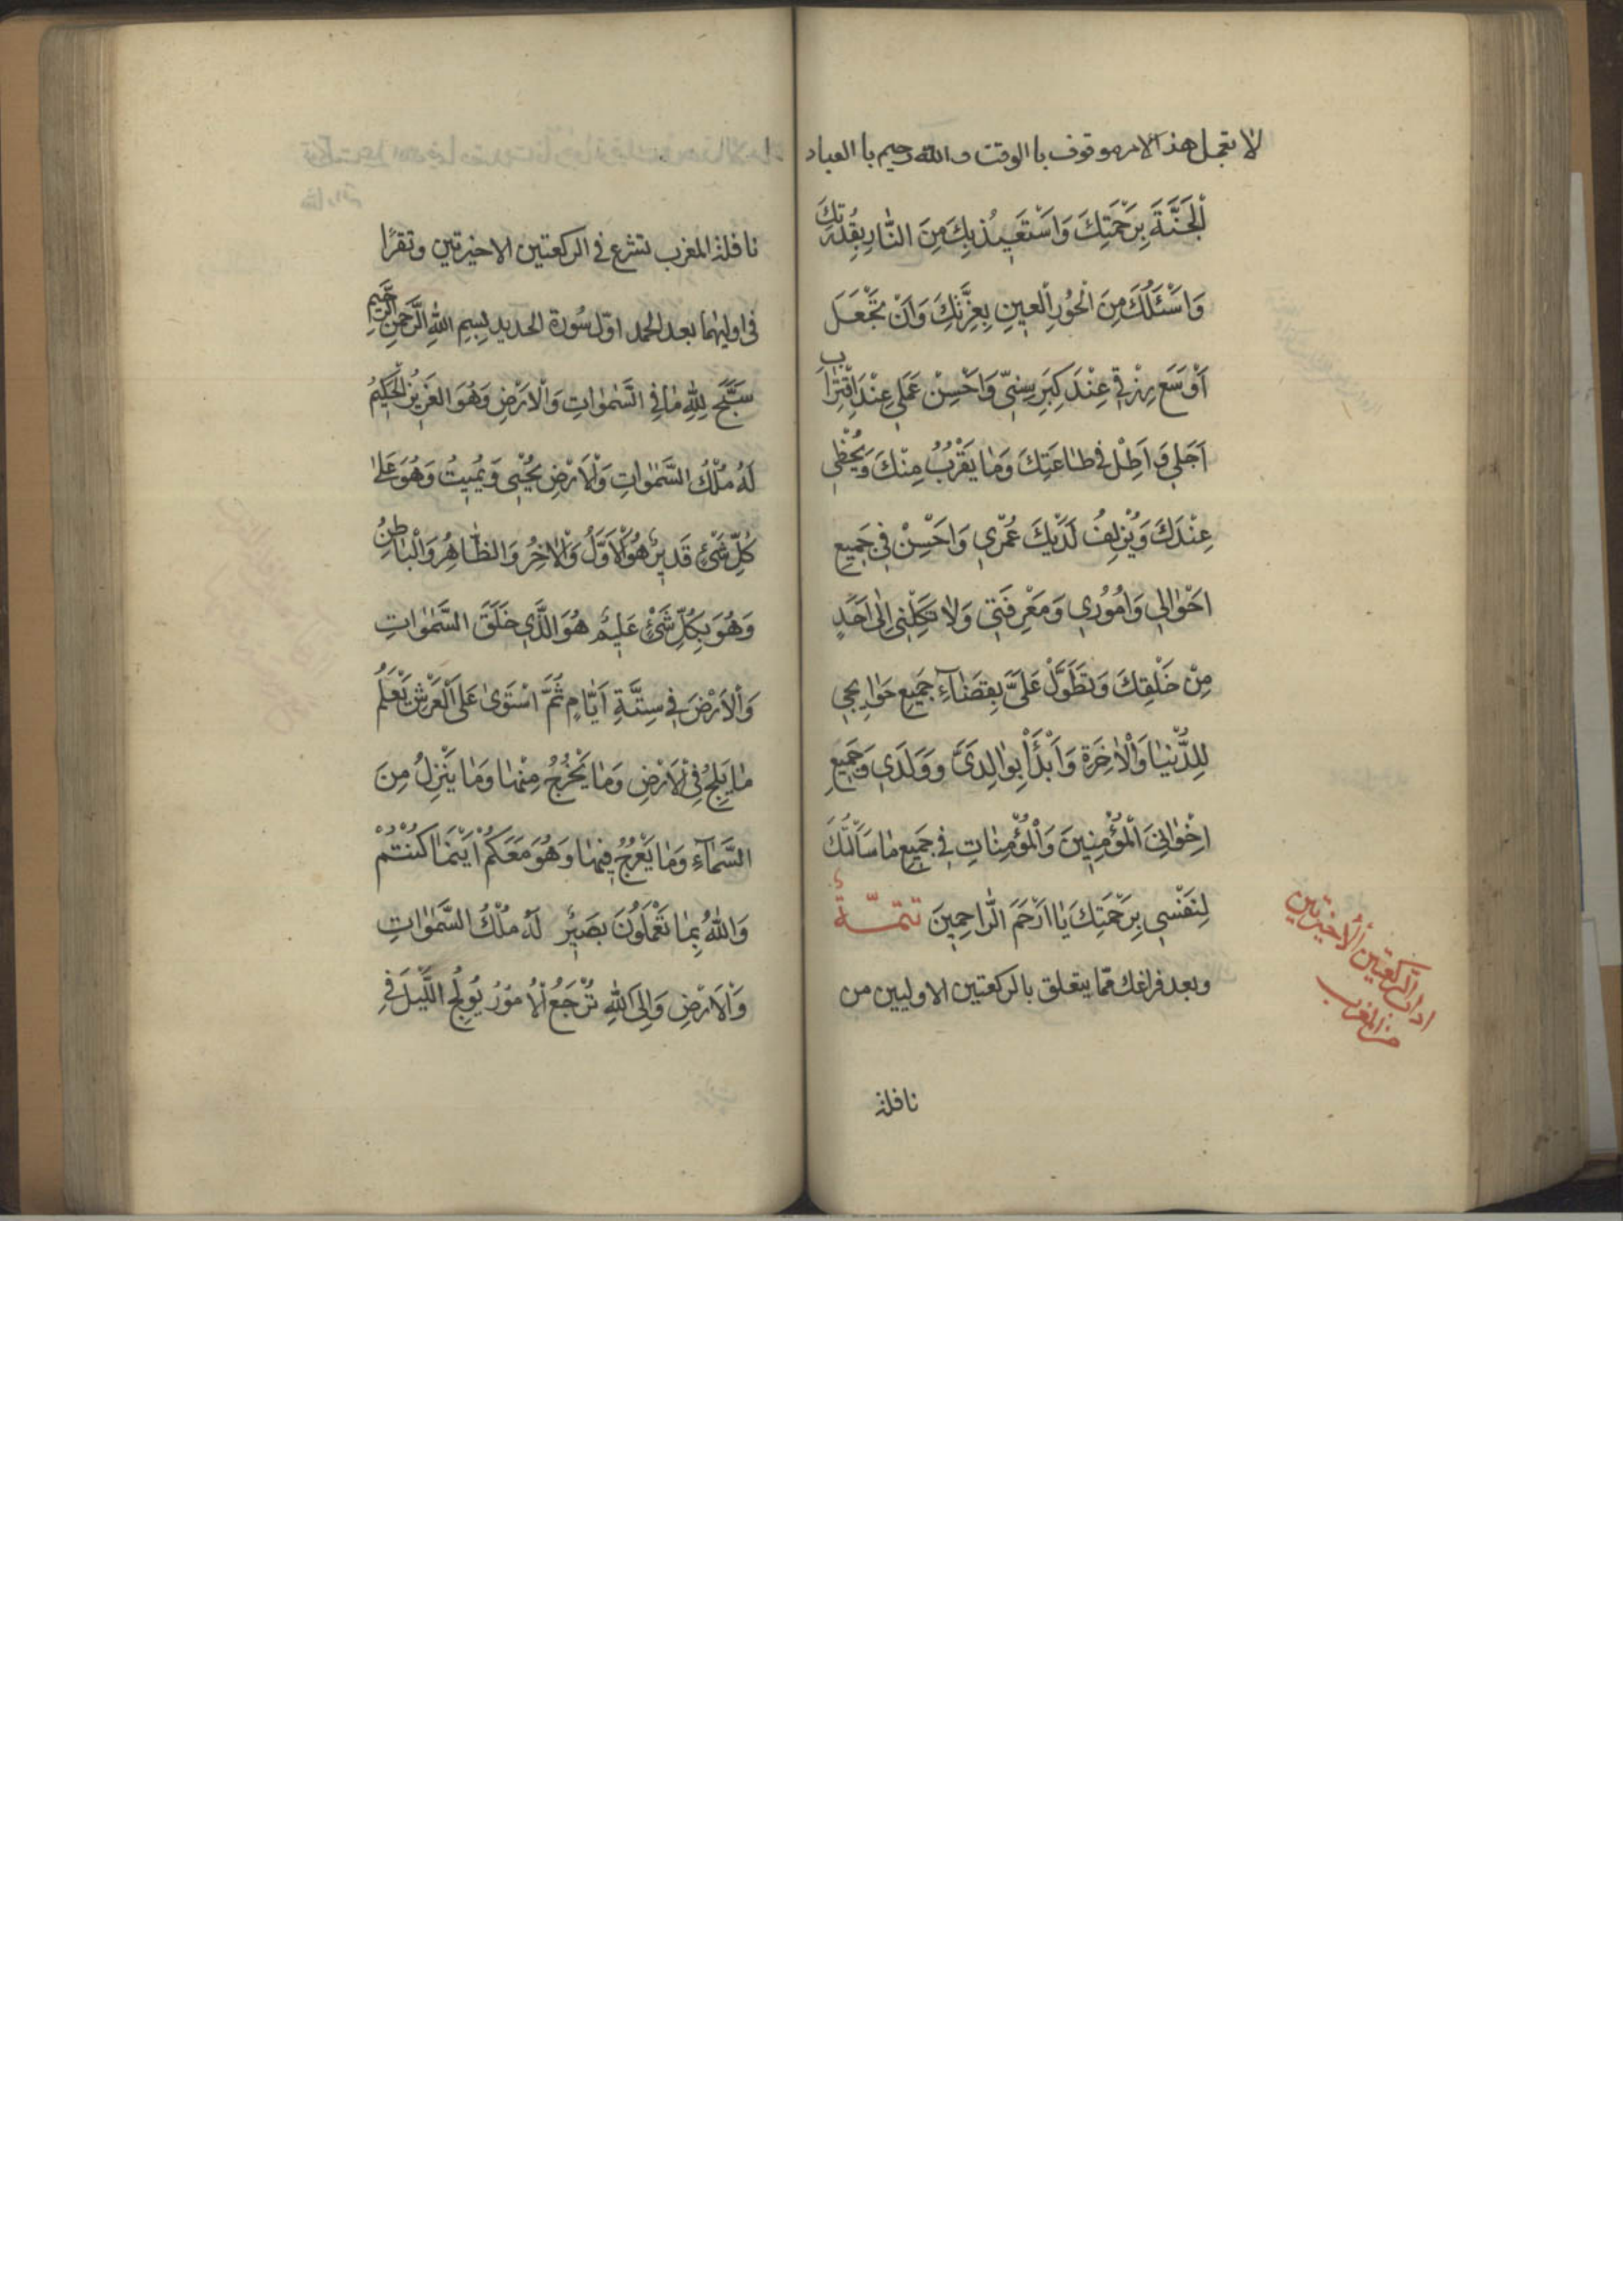 لا تعجل هذ الامر موقوف با الوقت والله رحيم با العباد
اَلْجَنَّةَ بِرَحْمَتِكَ وَاَسْتَعيذُ بِكَ مِنَ النّارِ بِقُدْرَتِكَ
وَاَسْئَلُكَ مِنَ الْحُورِ الْعينِ بِعِزَّتِكَ وَاَنْ تَجْعَلَ
اَوْسَعَ رِزْقي عِنْدَ كِبَرِ سِنّي وَاَحْسِنْ عَمَلي عِنْدَ اقْتِرابِ
اَجَلي وَاَطِلْ في طاعَتِكَ وَما يُقَرِّبُ مِنْكَ وَيُحْظي
عِنْدَكَ وَيُزْلِفُ لَدَيْكَ عُمْري وَاَحْسِنْ في جَميعِ
اَحْوالي وَاُمُوري وَمَعْرِفَتي وَلا تَكِلْني اِلى اَحَدٍ
مِنْ خَلْقِكَ وَتَطَوَّلْ عَلَيَّ بِقَضآءِ جَميعِ حَوائِجي
لِلدُّنْيا وَالْاخِرَةِ وَابْدَأْ بِوالِدَيَّ وَوَلَدي وَجَميعِ
اِخْوانِيَ الْمُؤْمِنينَ وَالْمُؤْمِناتِ في جَميعِ ما سَاَلْتُكَ
لِنَفْسي بِرَحْمَتِكَ يا اَرْحَمَ الرّاحِمينَ تتمّةٌ
وبعد فراغك ممّا يتعلق بالركعتين الاوليين من
اداب الركعتين الاخيرتين
من المغرب
نافلة
نافلة المغرب تشرع في الركعتين الاخيرتين وتقرأ
في اوليهما بعد الحمد اوّل سُورة الحديد بِسْمِ اللهِ الرَّحْمنِ الرَّحيمِ
سَبَّحَ لِلّهِ ما فِي السَّمواتِ وَالْاَرْضِ وَهُوَ الْعَزيزُ الْحَكيمُ
لَهُ مُلْكُ السَّمواتِ وَالْاَرْضِ يُحْيي وَيُميتُ وَهُوَ عَلى
كُلِّ شَيْءٍ قَديرٌ هُوَ الْاَوَّلُ وَالْاخِرُ وَالظّاهِرُ وَالْباطِنُ
وَهُوَ بِكُلِّ شَيْءٍ عَليمٌ هُوَ الَّذي خَلَقَ السَّمواتِ
وَالْاَرْضَ في سِتَّةِ اَيّامٍ ثُمَّ اسْتَوى عَلَى الْعَرْشِ يَعْلَمُ
ما يَلِجُ فِي الْاَرْضِ وَما يَخْرُجُ مِنْها وَما يَنْزِلُ مِنَ
السَّمآءِ وَما يَعْرُجُ فيها وَهُوَ مَعَكُمْ اَيْنَما كُنْتُمْ
وَاللهُ بِما تَعْمَلُونَ بَصيرٌ لَهُ مُلْكُ السَّمواتِ
وَالْاَرْضِ وَاِلَى اللهِ تُرْجَعُ الْاُمُورُ يُولِجُ اللَّيْلَ فِي